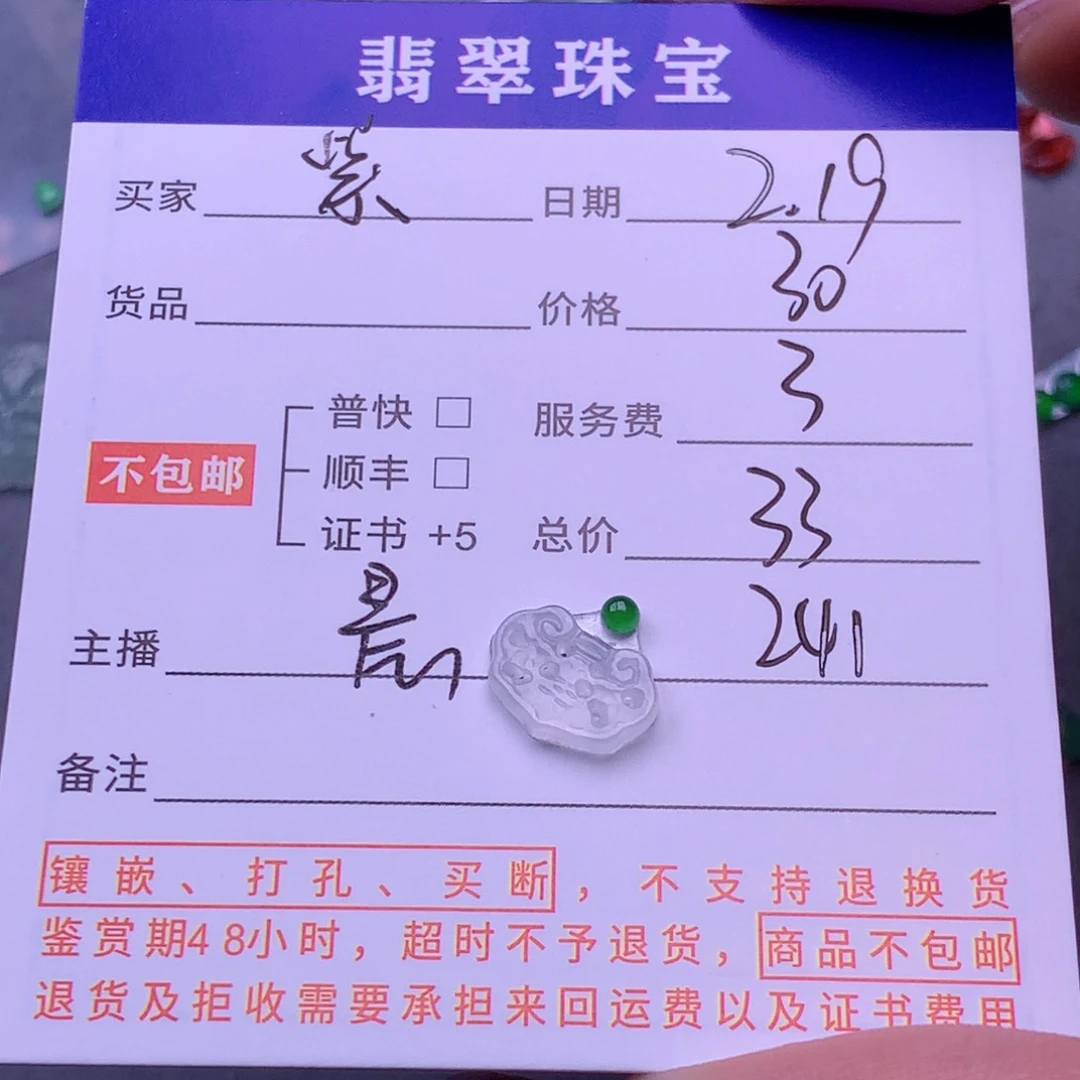 翡翠珠宝
买家 紫 日期 2.19
货品 价格 30
普快 □ 服务费 3
不包邮 顺丰 □
证书 +5 总价 33
主播 241
备注
镶嵌、打孔、买断，不支持退换货
鉴赏期48小时，超时不予退货，商品不包邮
退货及拒收需要承担来回运费以及证书费用